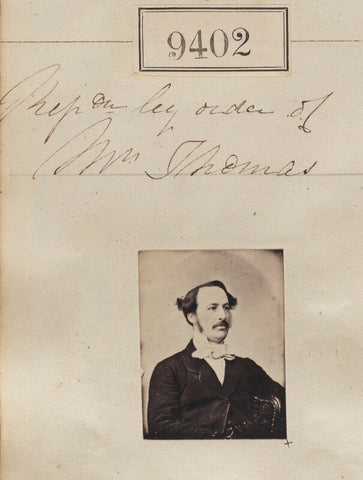 9402
Rep^dn by order of
Mrs Thomas